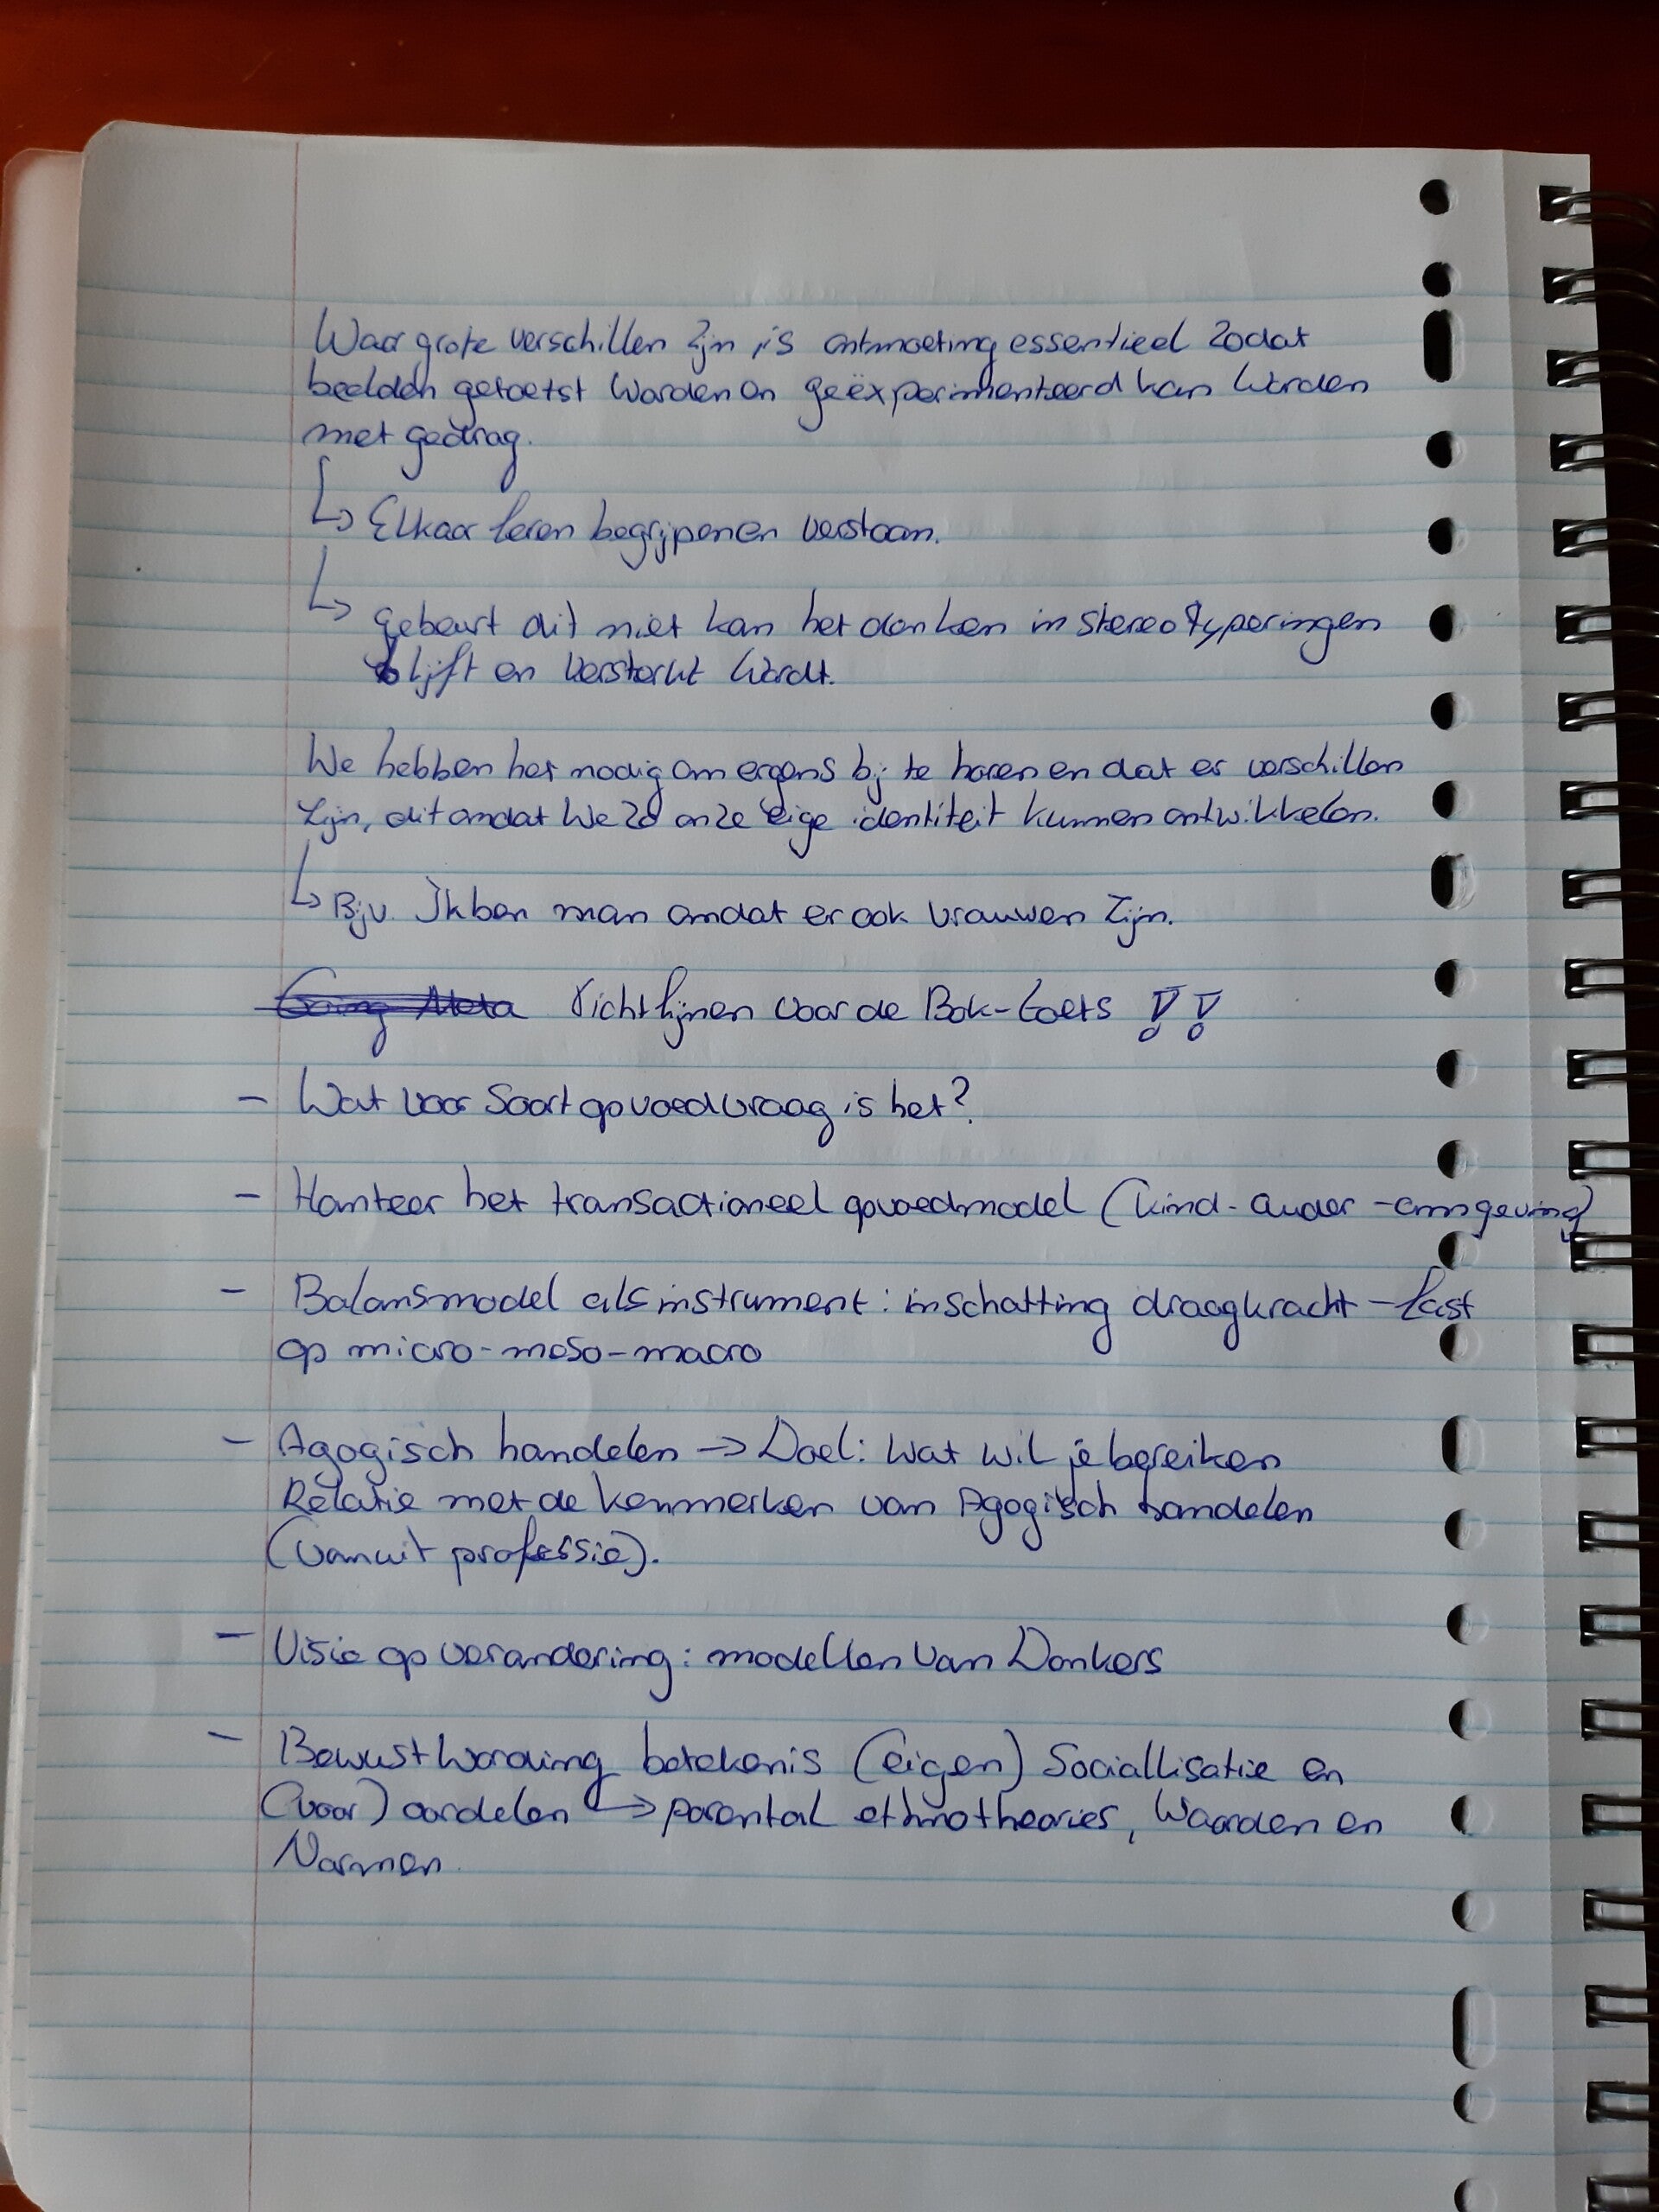 Waar grote verschillen zijn, is ontmoeting essentieel zodat
beelden getoetst worden en geëxperimenteerd kan worden
met gedrag.
↳ Elkaar leren begrijpen en verstaan.
↳ gebeurt dit niet kan het denken in stereotyperingen
blijft en versterkt wordt.
We hebben het nodig om ergens bij te horen en dat er verschillen
zijn, dit omdat we zo onze eige identiteit kunnen ontwikkelen.
↳ Bijv. Ik ben man omdat er ook vrouwen zijn.
Going Meta richtlijnen voor de Bok-toets !!
- Wat voor soort opvoedvraag is het?
- Hanteer het transactioneel opvoedmodel (kind-ouder-omgeving)
- Balansmodel als instrument: inschatting draagkracht-last
op micro-meso-macro
- Agogisch handelen → Doel: wat wil je bereiken
Relatie met de kenmerken van Agogisch handelen
(vanuit professie).
- Visie op verandering: modellen van Donkers
- Bewustwording betekenis (eigen) Sociallisatie en
(voor) oordelen ↳ parental ethnotheories, Waarden en
Normen.